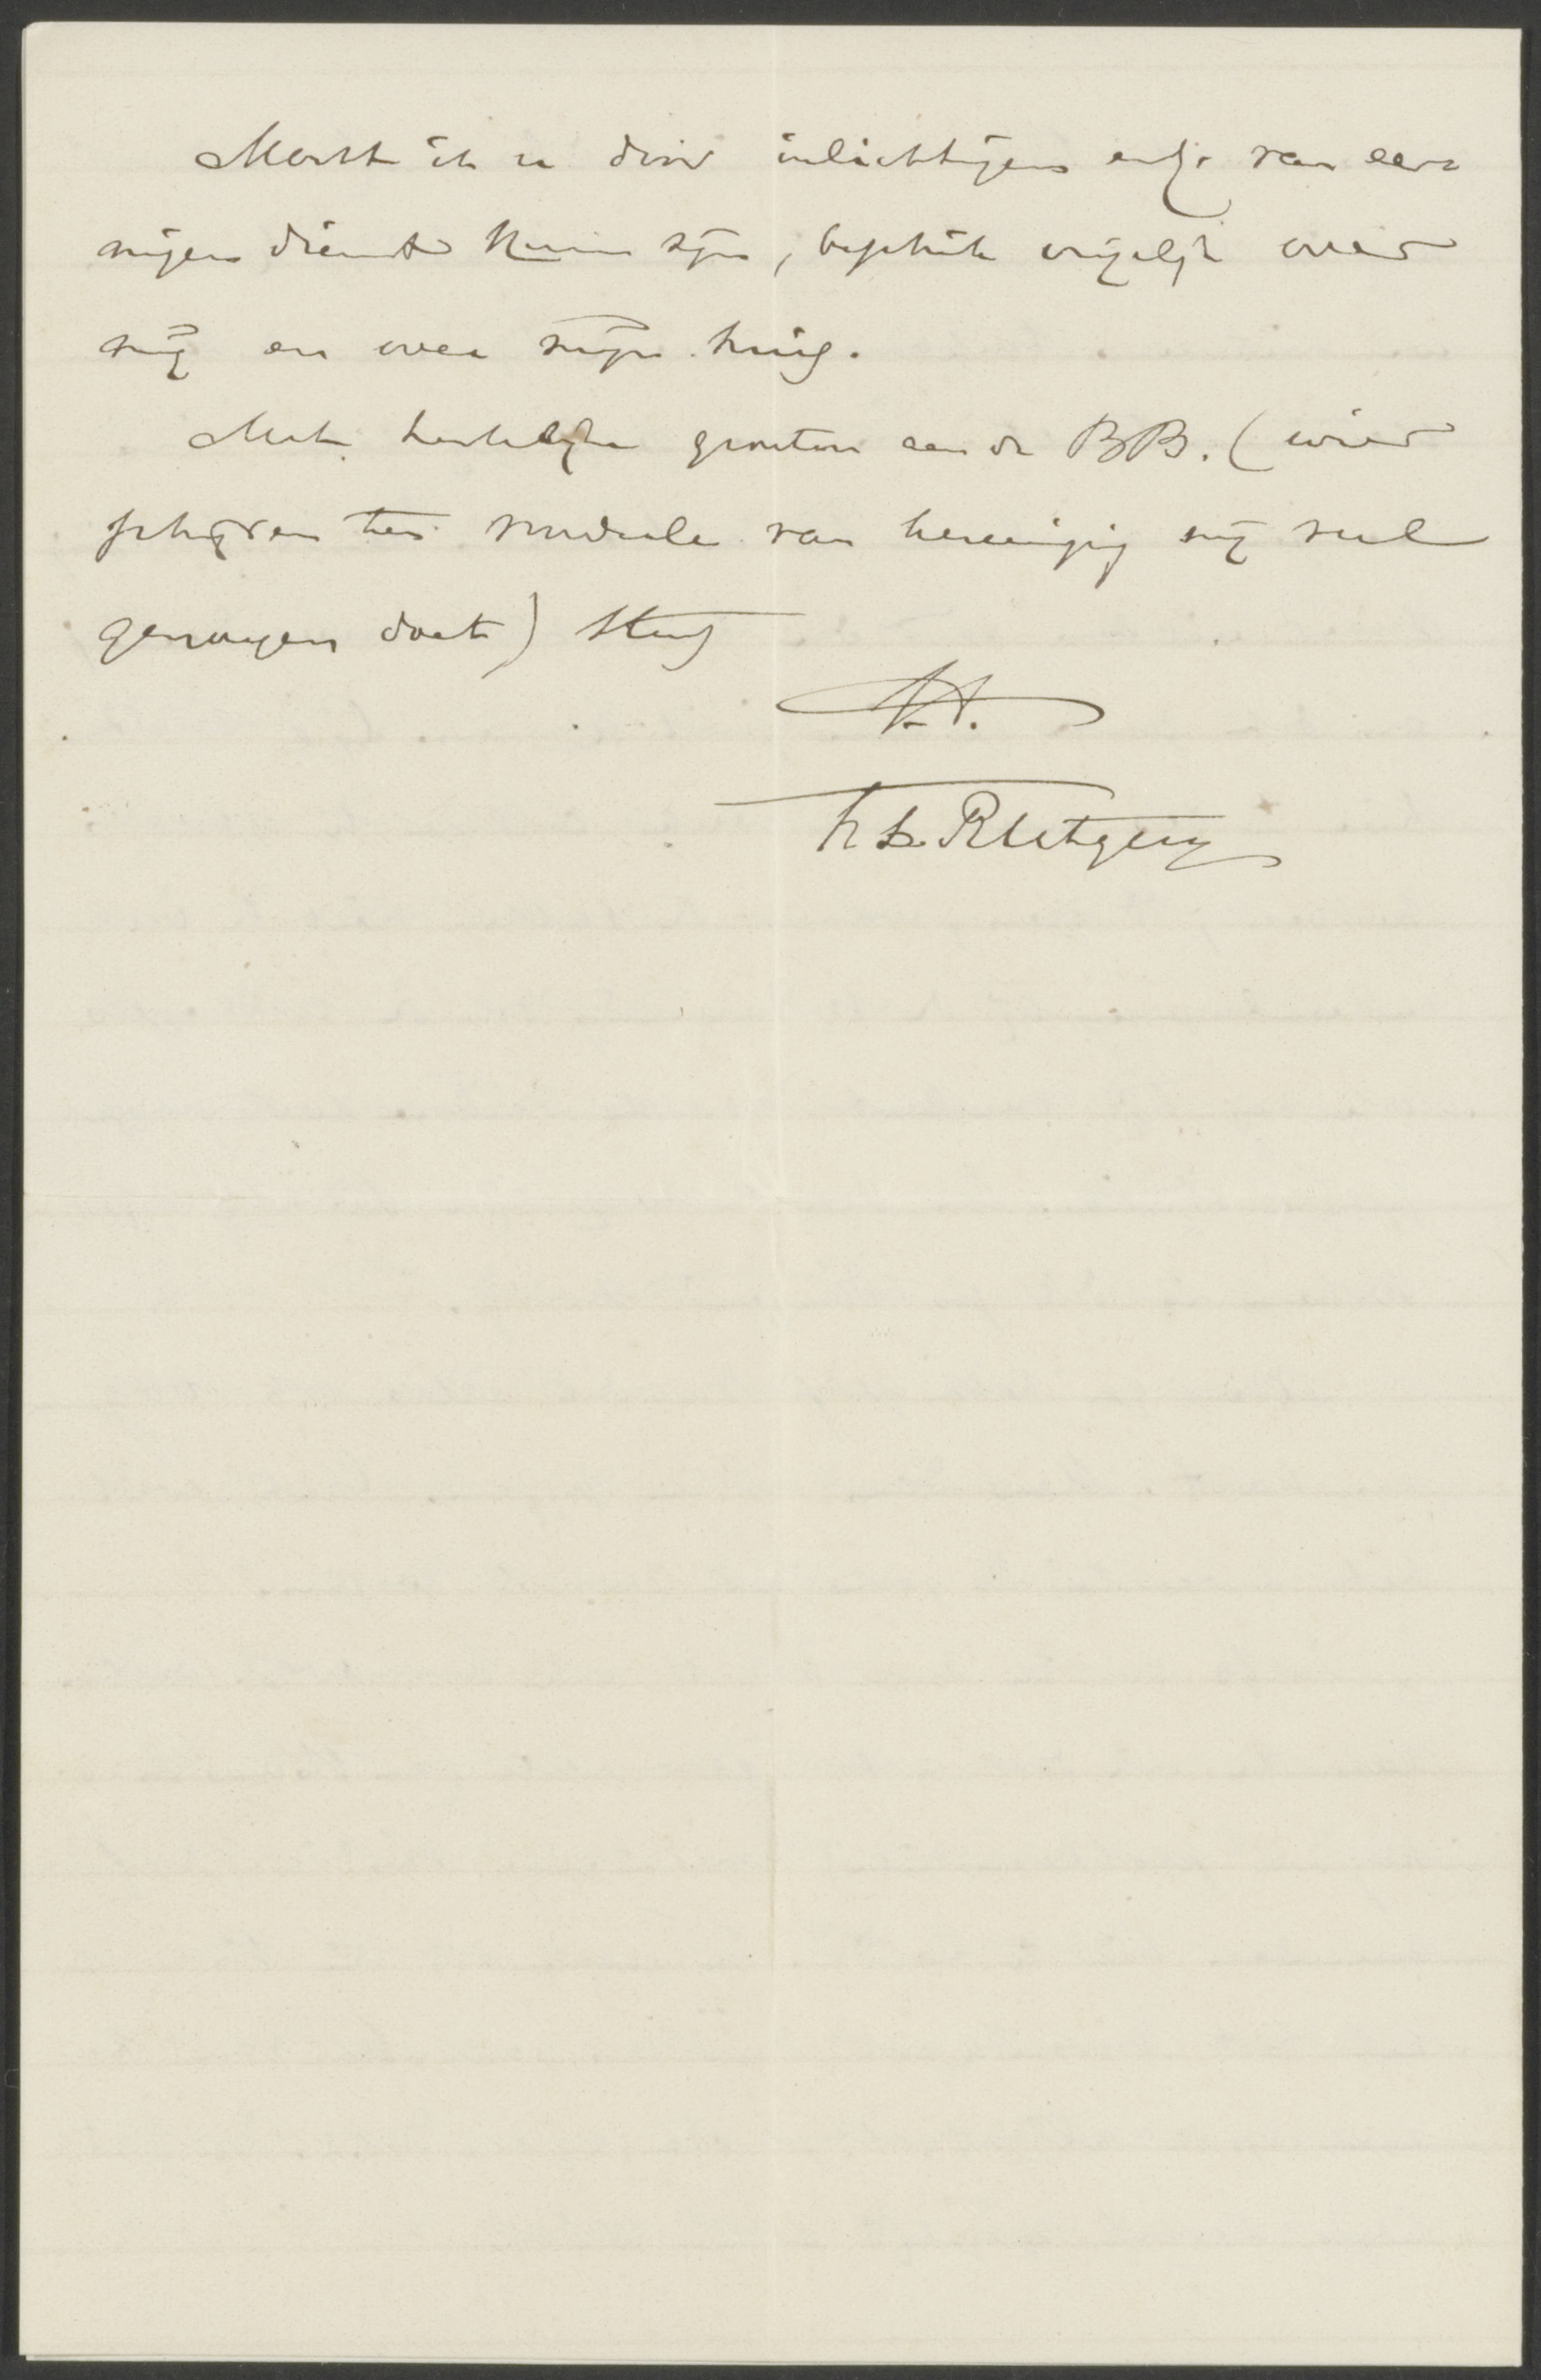 Mocht ik u door inlichtingen enz. van een
nigen dienst kunn zijn, beschik vrijelijk over
mij en over mijn huis.
Met hartelijke groeten aan de BB. (wier
schrijven ten voordeele van hereeniging mij veel
genoegen doet) steeds
tt.
F L Rutgers